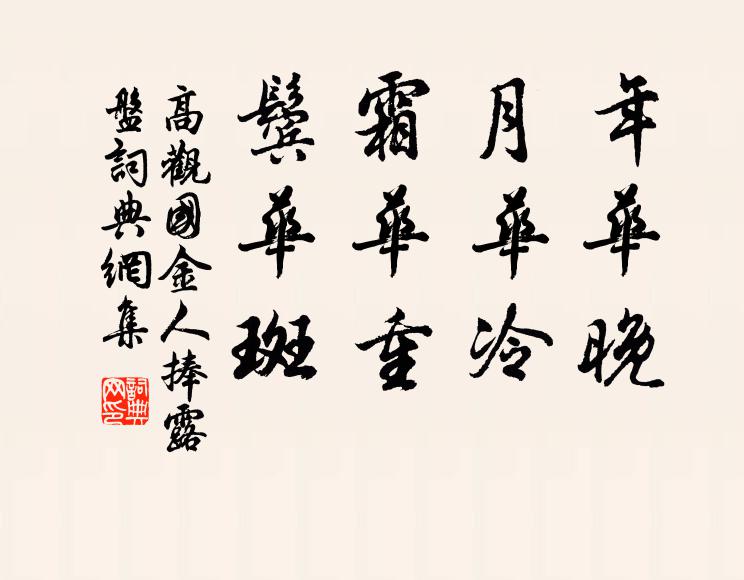 年華晚
月華冷
霜華重
鬓華斑
高觀國金人捧露
盤詞典網集
詞典网印